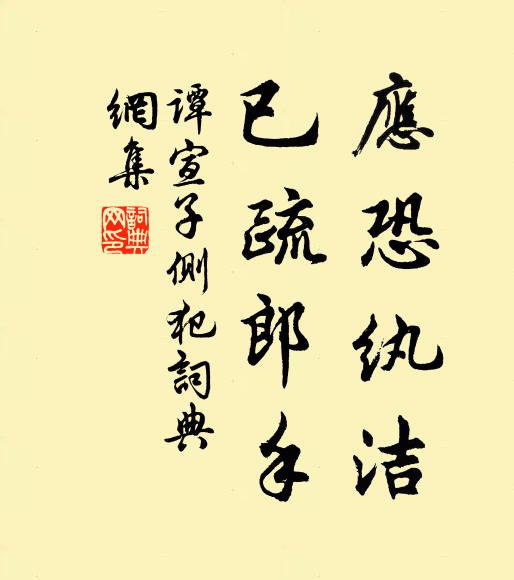 應恐紈洁
已疏郎手
譚宣子側犯詞典
網集
詞典網印